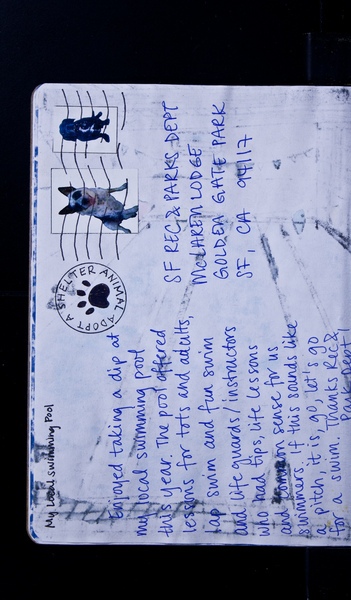 My local swimming Pool
Enjoyed taking a dip at
my local swimming pool
this year. The pool offered
lessons for tots and adults,
lap swim and fun swim
and life guards/instructors
who had tips, life lessons
and common sense for us
swimmers. If this sounds like
a pitch, it is, go, let's go
for a swim. Thanks Rec &
Park Dept!
ADOPT A SHELTER ANIMAL
SF REC & PARKS DEPT
McLAREN LODGE
GOLDEN GATE PARK
SF, CA 94117